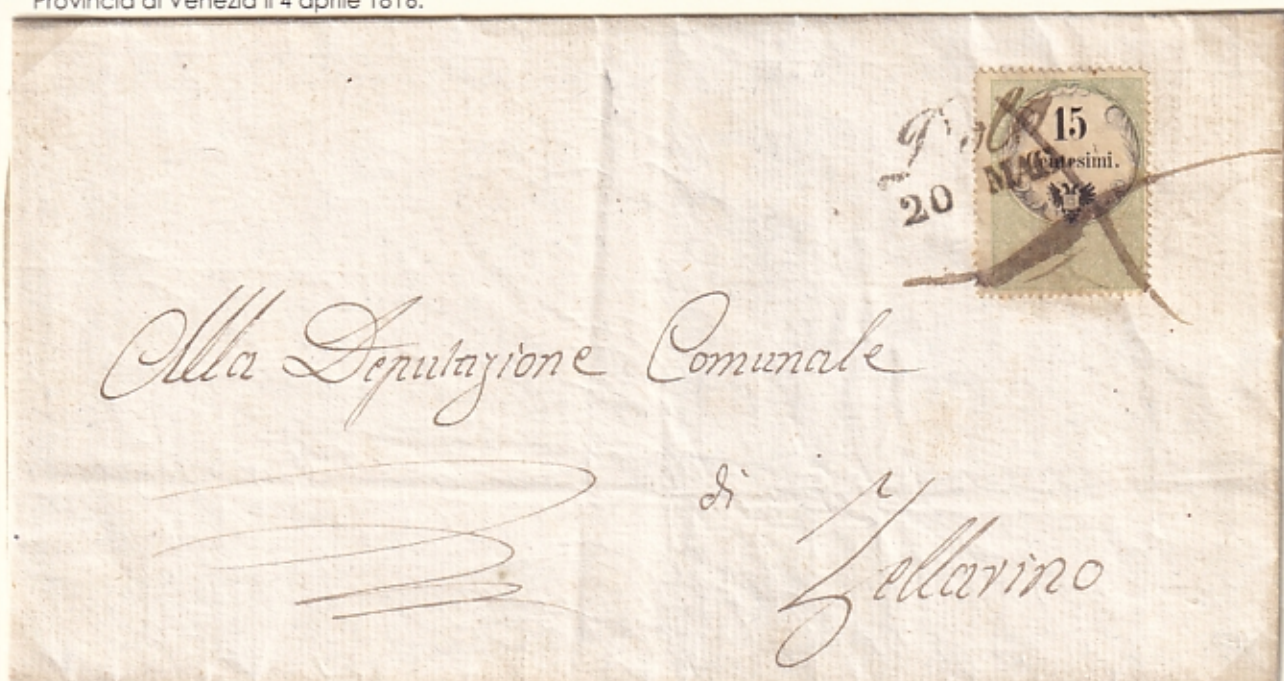 Provincia di Venezia il 4 aprile 1818.
15
Centesimi.
20 MAR
Alla Deputazione Comunale
di
Zellarino